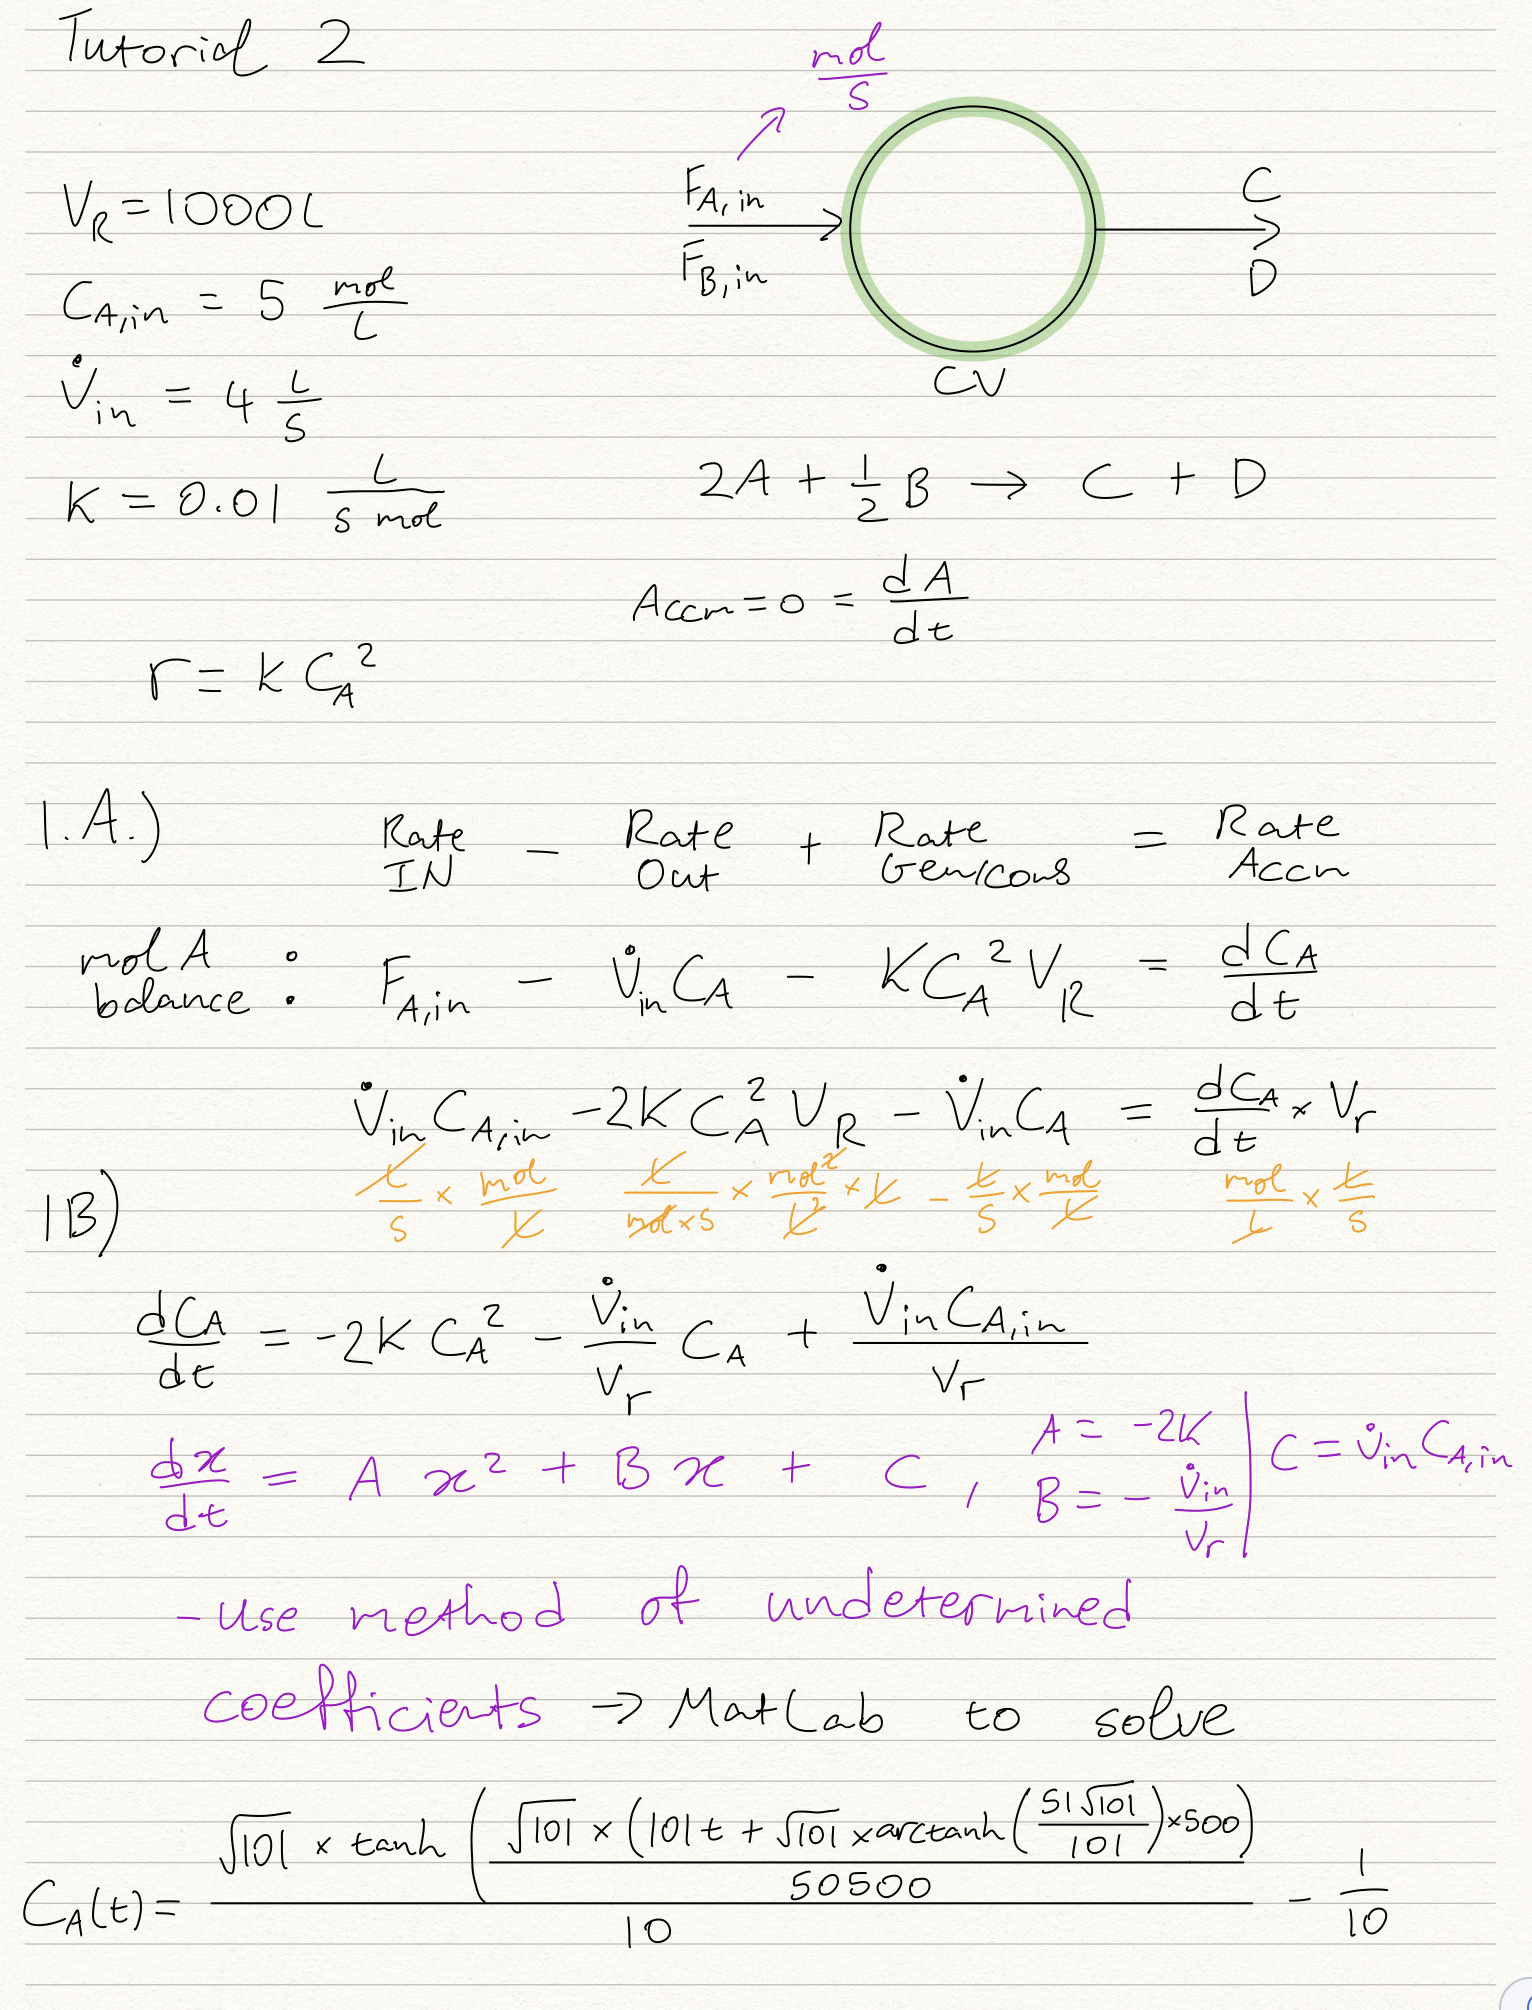 Tutorial 2
mol/s
V_R = 1000L
F_A,in
F_B,in
C
D
C_A,in = 5 mol/L
CV
V̇_in = 4 L/s
K = 0.01 L/(s mol)
2A + 1/2 B → C + D
Accm = 0 = dA/dt
r = k C_A^2
1.A.)
Rate IN − Rate Out + Rate Gen/cons = Rate Accn
mol A balance : F_A,in − V̇_in C_A − K C_A^2 V_R = dC_A/dt
V̇_in C_A,in − 2K C_A^2 V_R − V̇_in C_A = dC_A/dt × V_r
L/s × mol/L L/(mol×s) × mol^2/L^2 × L − L/s × mol/L mol/L × L/s
1B)
dC_A/dt = −2K C_A^2 − V̇_in/V_r C_A + V̇_in C_A,in/V_r
dx/dt = A x^2 + B x + C , A = −2K | C = V̇_in C_A,in
B = − V̇_in/V_r
- use method of undetermined
coefficients → MatLab to solve
C_A(t) = √101 × tanh(√101 × (101t + √101 × arctanh(51√101/101) × 500)/50500)/10 − 1/10